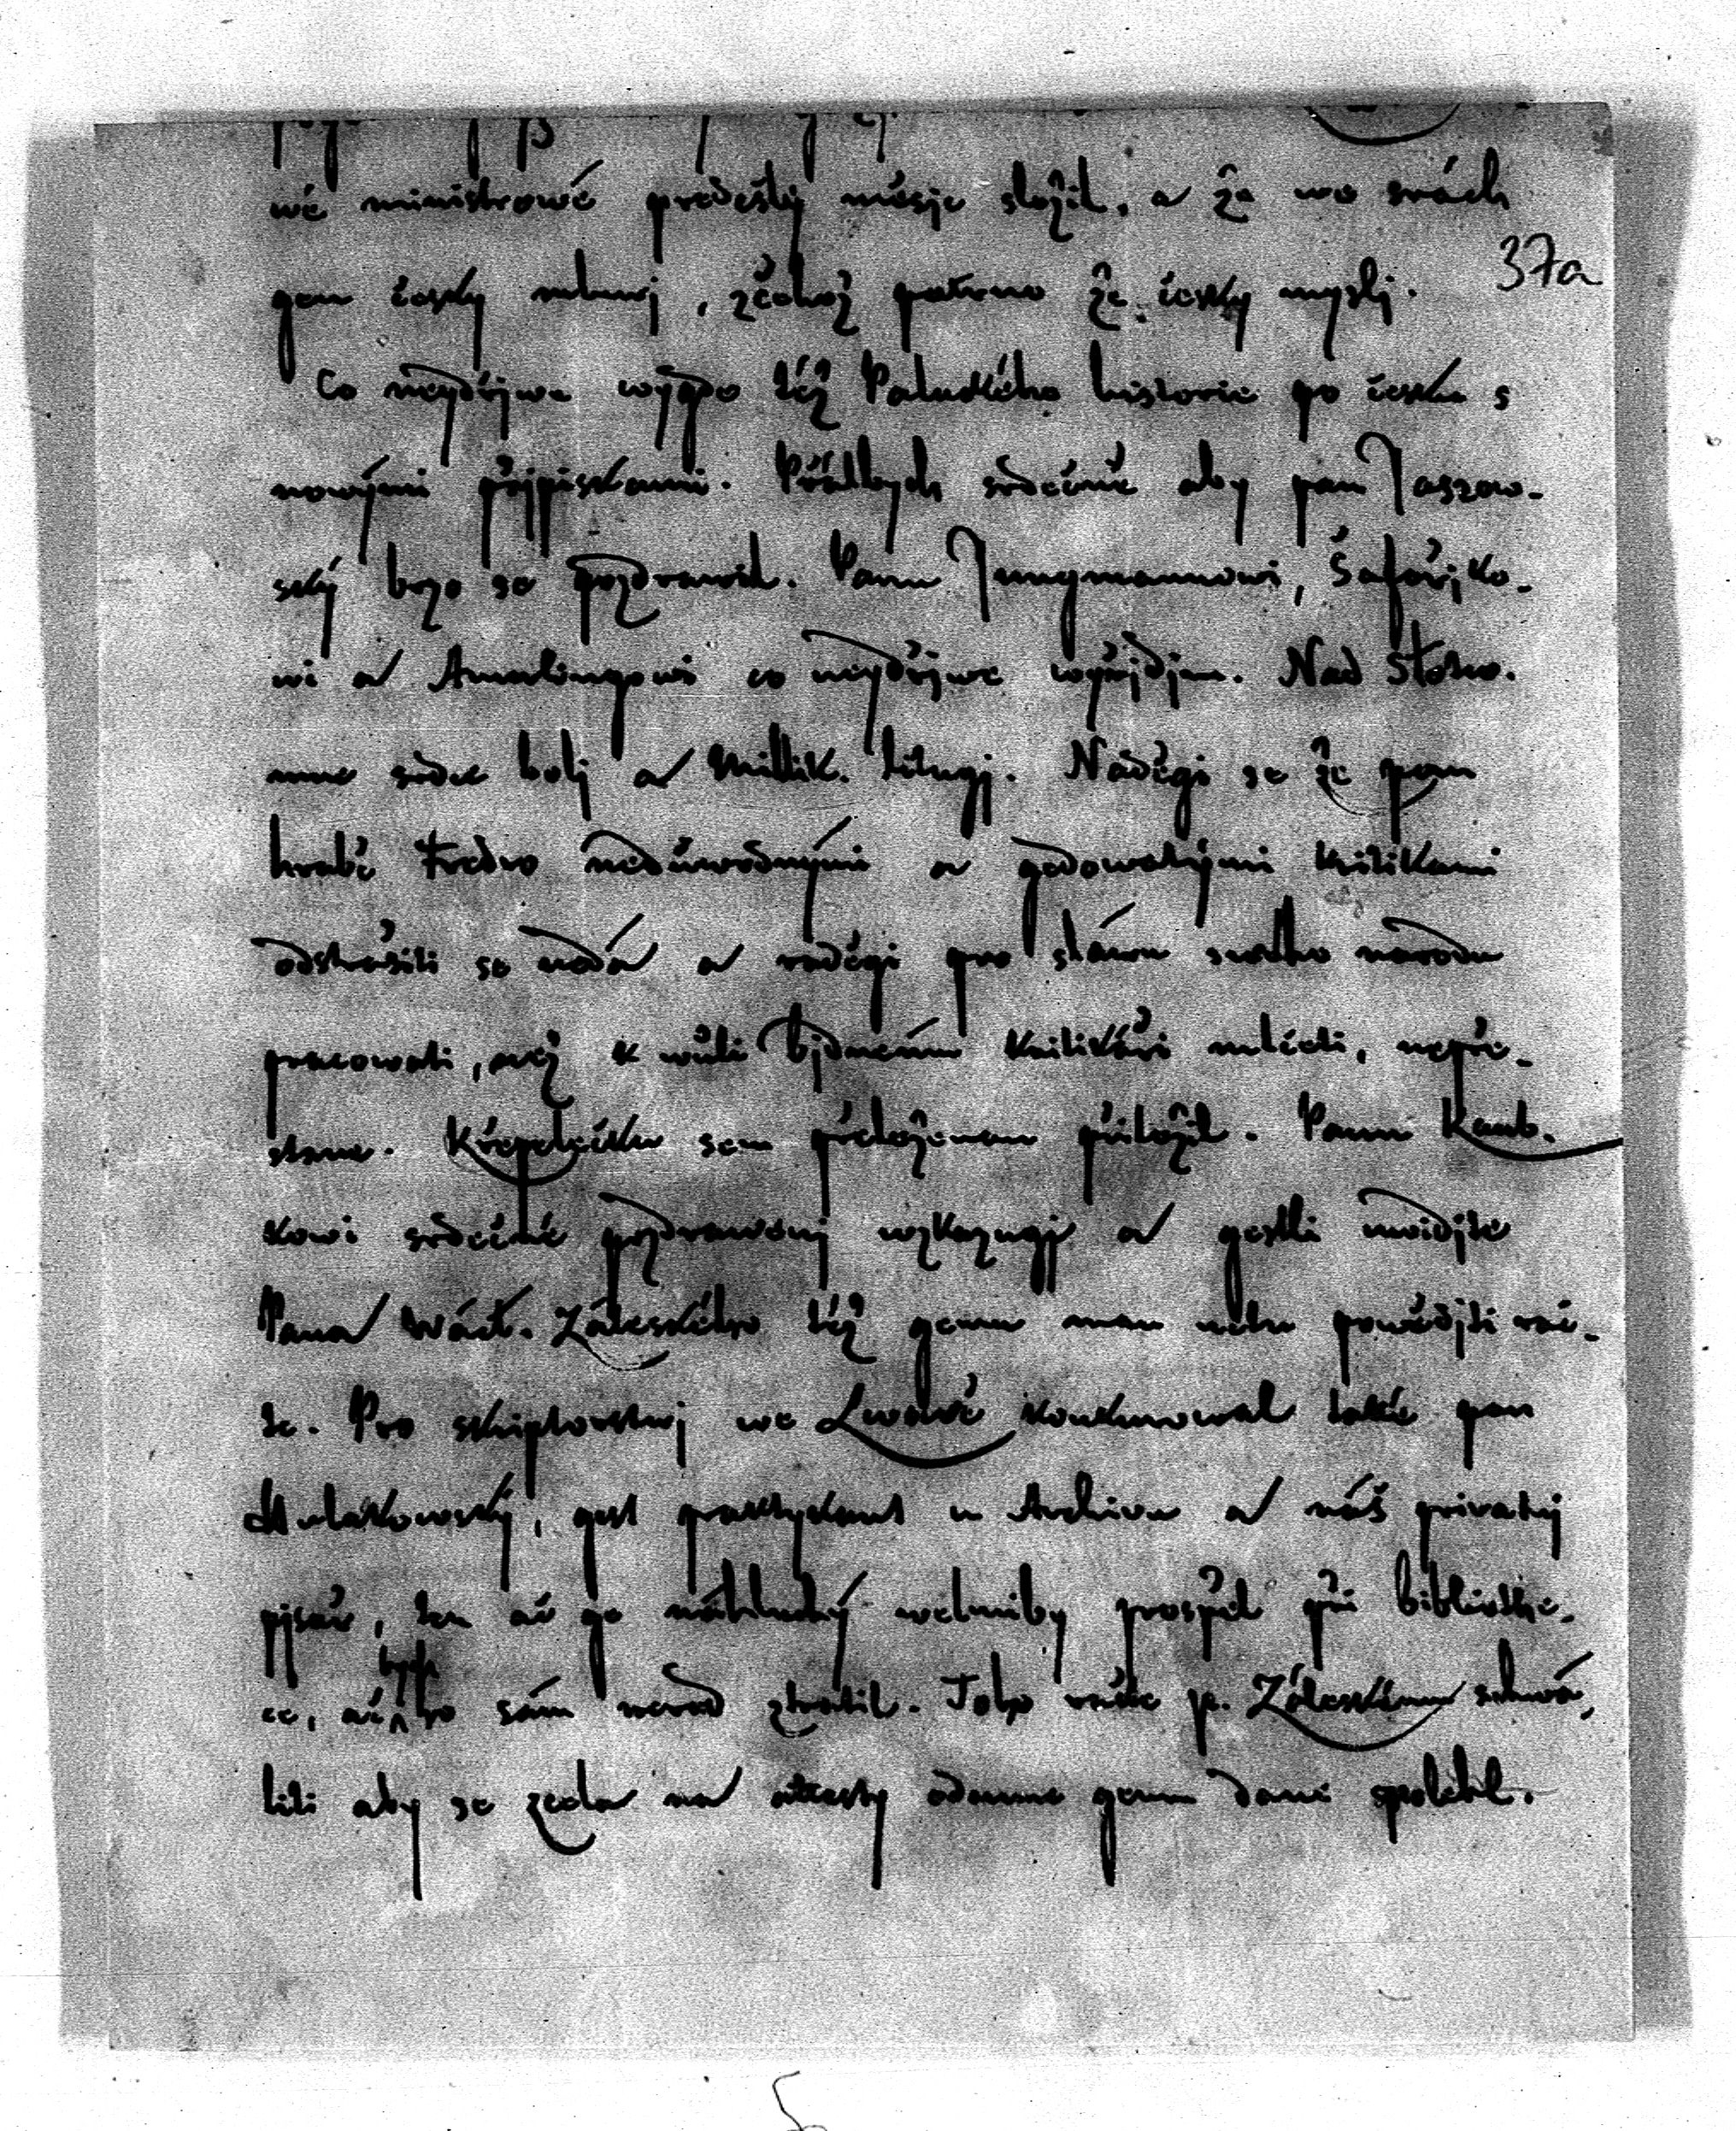 wé ministrowé předešlý měsjc složil, a že we snách
gen česky mluwj, zčehož patrno že česky myslj.
37a
Co neydřjwe wygde též Palackého historie po česku s
nowými přjpiskami. Přálbych srdečně aby pan Jaszow-
ský brzo se pozdrawil. Panu Jungmannowi, Šafařjko-
wi a Amerlingowi co neydřjwe wyřjdjm. Nad Stosu.
mne srdce bolj a Millik. litugj. Naděgi se že pan
hrabě Fredro nedůwodnými a gedowatými kritikami
odstrašiti se nedá a raděgi pro sláwu swého národu
pracowati, než k wůli bjdnému kritikáři mlčeti, nepře-
stane. Křepeličku sem přeloženau přiložil. Panu Kaub.
kowi srdečné pozdrawenj wzkazugi a gestli uwidjte
Pana Wácł. Záleského též gemu mau uctu powěděti rač-
te. Pro skriptorstwj we Lwowě konkurowal také pan
Mulakowský, gest praktykant u Archivu a náš privatnj
pjsař, ten ač ge náhluchý welmiby prospěl při bibliothe-
ce, ač bych ho sám nerad ztratil. Toho račte p. Záleskému schwá-
liti aby se zcela na attesty odemne gemu dané spolehl.